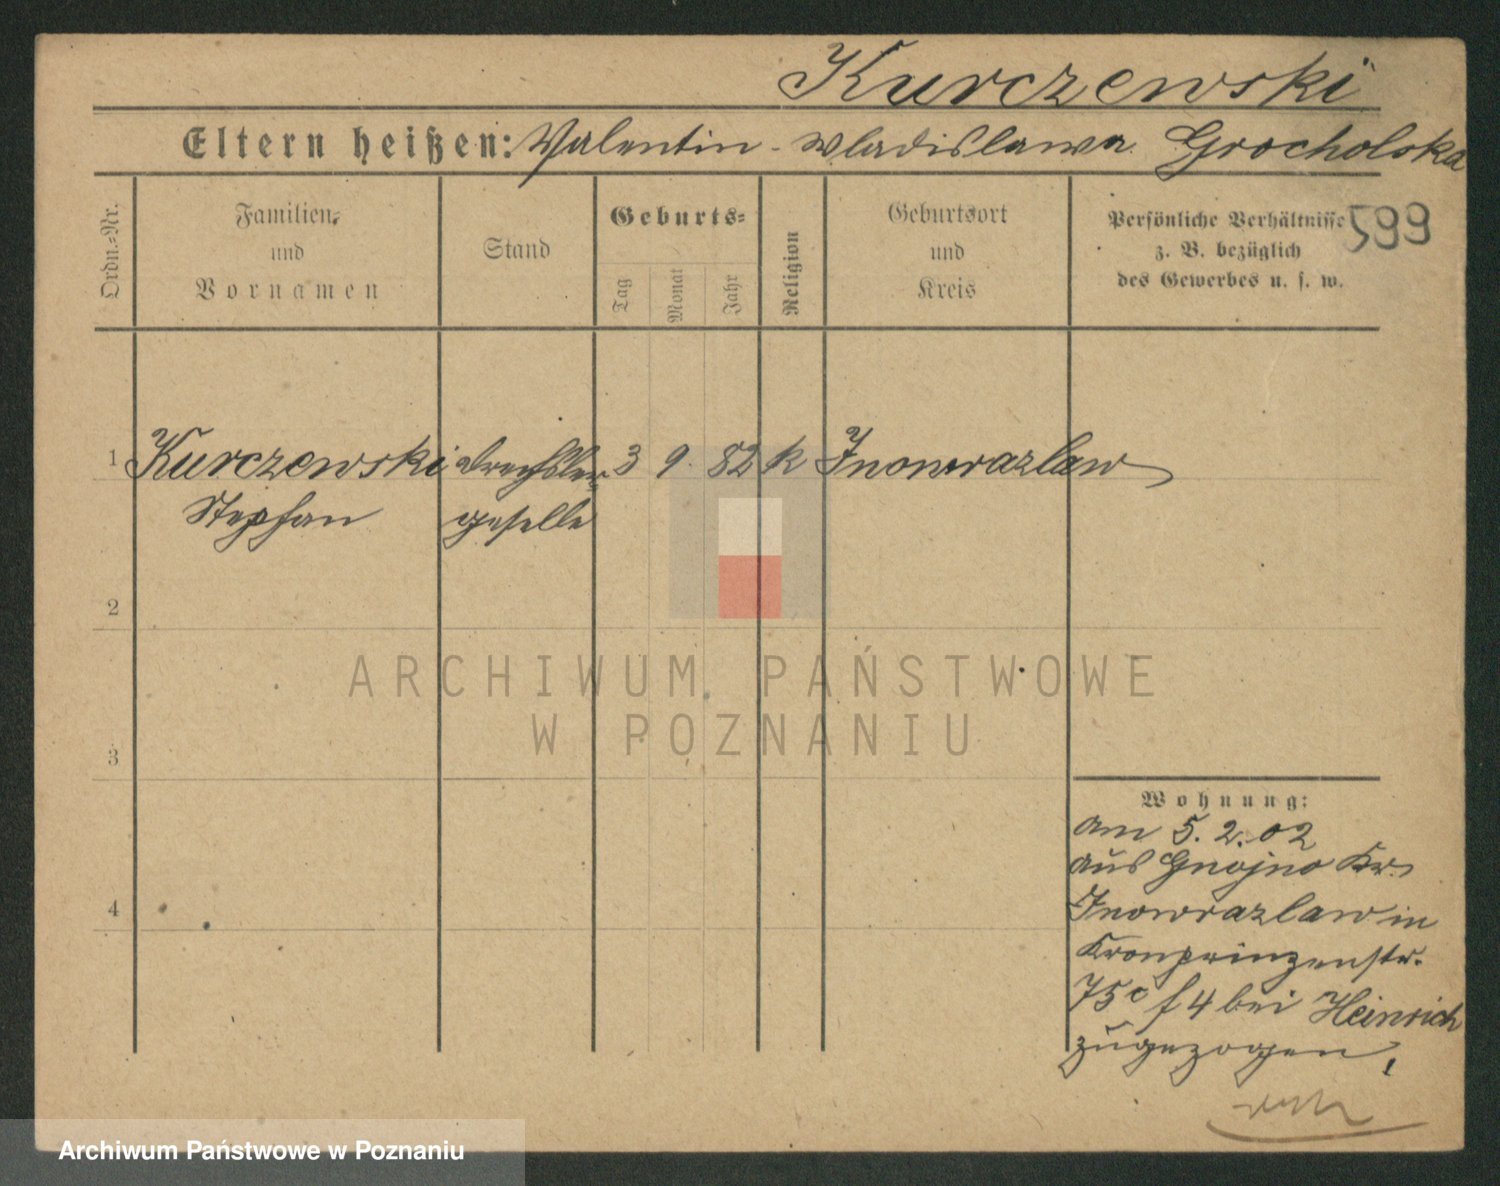 Kurczewski
Eltern heißen: Valentin - Wladislawa Grocholska
Ordn.=Nr.
Familien=
und
Vornamen
Stand
Geburts=
Tag
Monat
Jahr
Religion
Geburtsort
und
Kreis
Persönliche Verhältnisse
z. B. bezüglich
des Gewerbes u. s. w.
599
1 Kurczewski Drechsler 3 9. 82 k Inowrazlaw
Stephan geselle
2
3
4
Wohnung:
am 5.2.02
aus Gnojno Kr.
Inowrazlaw in
Kronprinzenstr.
75c f 4 bei Heinrich
zugezogen,
ARCHIWUM PAŃSTWOWE
W POZNANIU
Archiwum Państwowe w Poznaniu